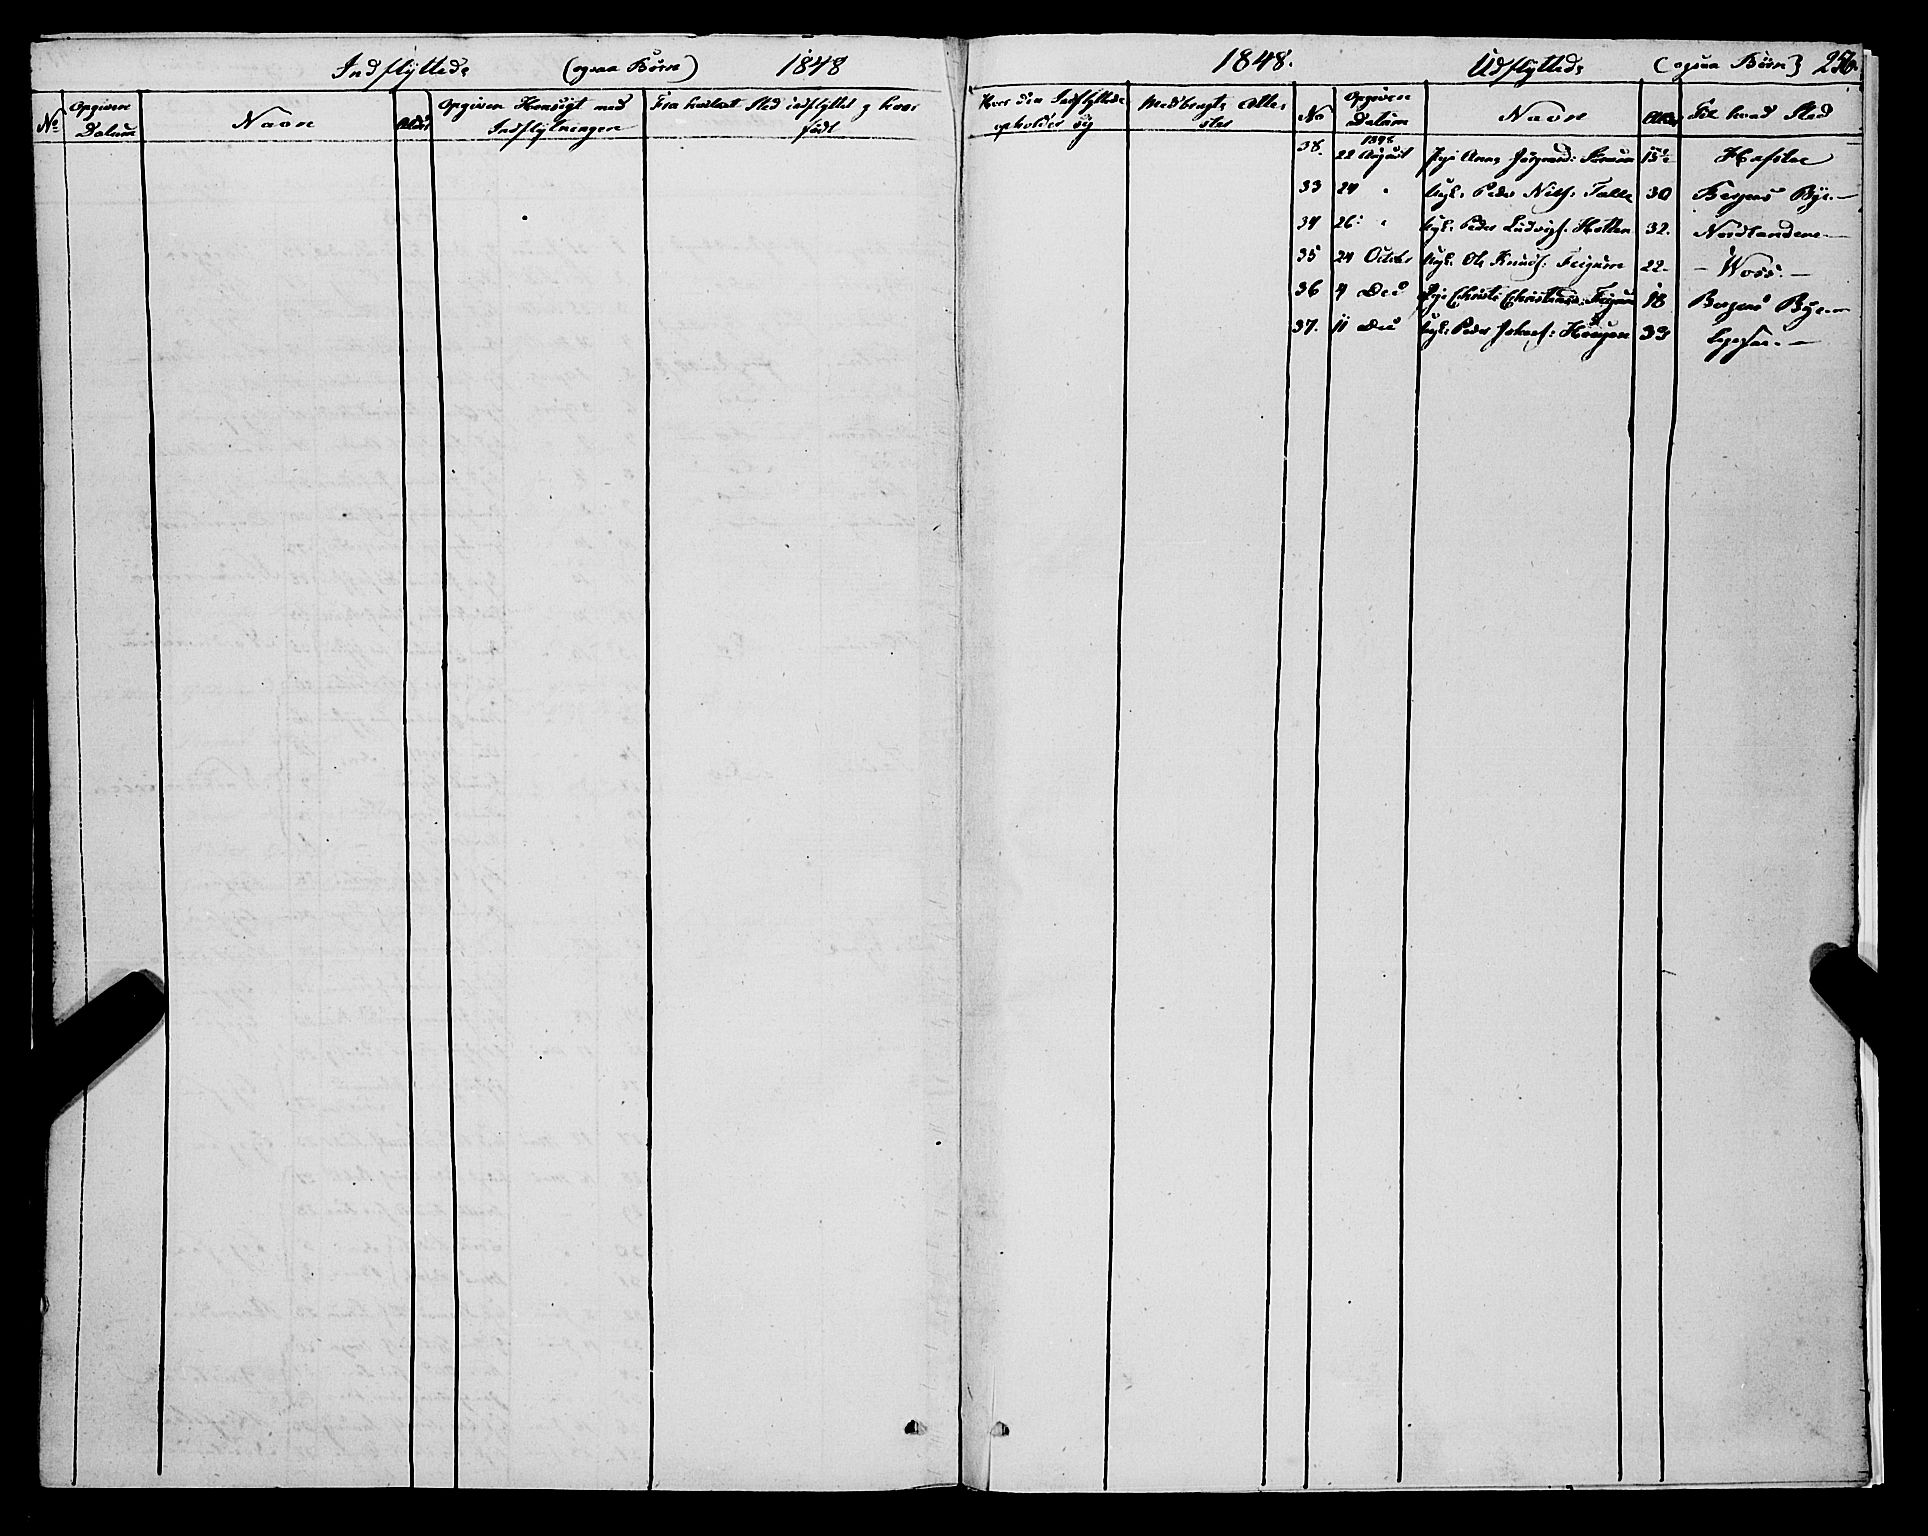 Indflyttede (ogsaa Børn) 1848
No
Opgiven Datum
Navn
Alder
Opgiven Hensigt med Indflytningen
Fra hvilket Sted indflyttet og hvor født
1848. Udflyttede (ogsaa Børn) 256.
Hvor den Indflyttede opholder sig
Medbragte Attester
No
Opgiven Datum
Navn
Alder
Til hvad Sted
1848
38. 22 August Pige Anna 15½ Hafslo
33 24 " Ungk. Peder Nils: Talle 30 Bergens Bye.—
34 26: " Ungk. Peder Ludvigs: Hotten 32. Nordlandene—
35 24 October Ungk. Ole Knuds: Feigum 22. — Woss.—
36 4 Dec Pige Christi Christens: Feigum 18 Bergens Bye—
37. 11 Dec Ungk: Peder Johans: Haugen 33 ligesaa.—